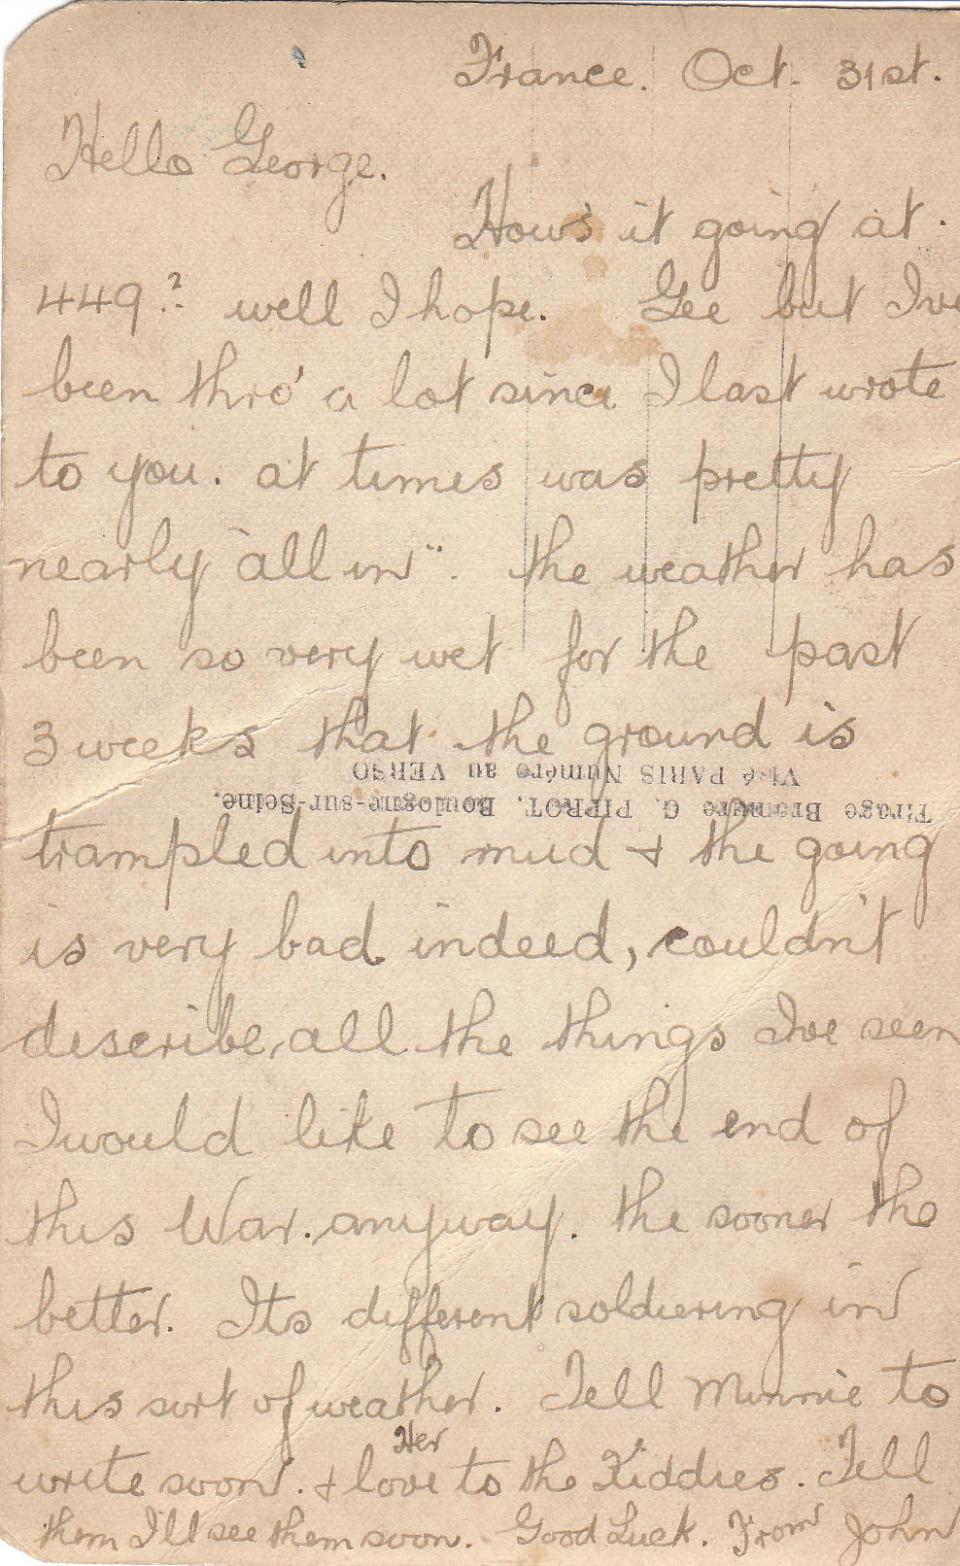 France. Oct. 31st.
Hello George.
How's it going at
449? well I hope. Gee but I've
been thro' a lot since I last wrote
to you. at times was pretty
nearly "all in". the weather has
been so very wet for the past
3 weeks that the ground is
Visé PARIS Numéro au VERSO
Tirage Bromure G. PIPROT. Boulogne-sur-Seine.
trampled into mud + the going
is very bad indeed, couldn't
describe, all the things I've seen
I would like to see the end of
this War. anyway. the sooner the
better. Its different soldiering in
this sort of weather. Tell Minnie to
Her
write soon. + love to the Kiddies. Tell
them I'll see them soon. Good Luck. From John